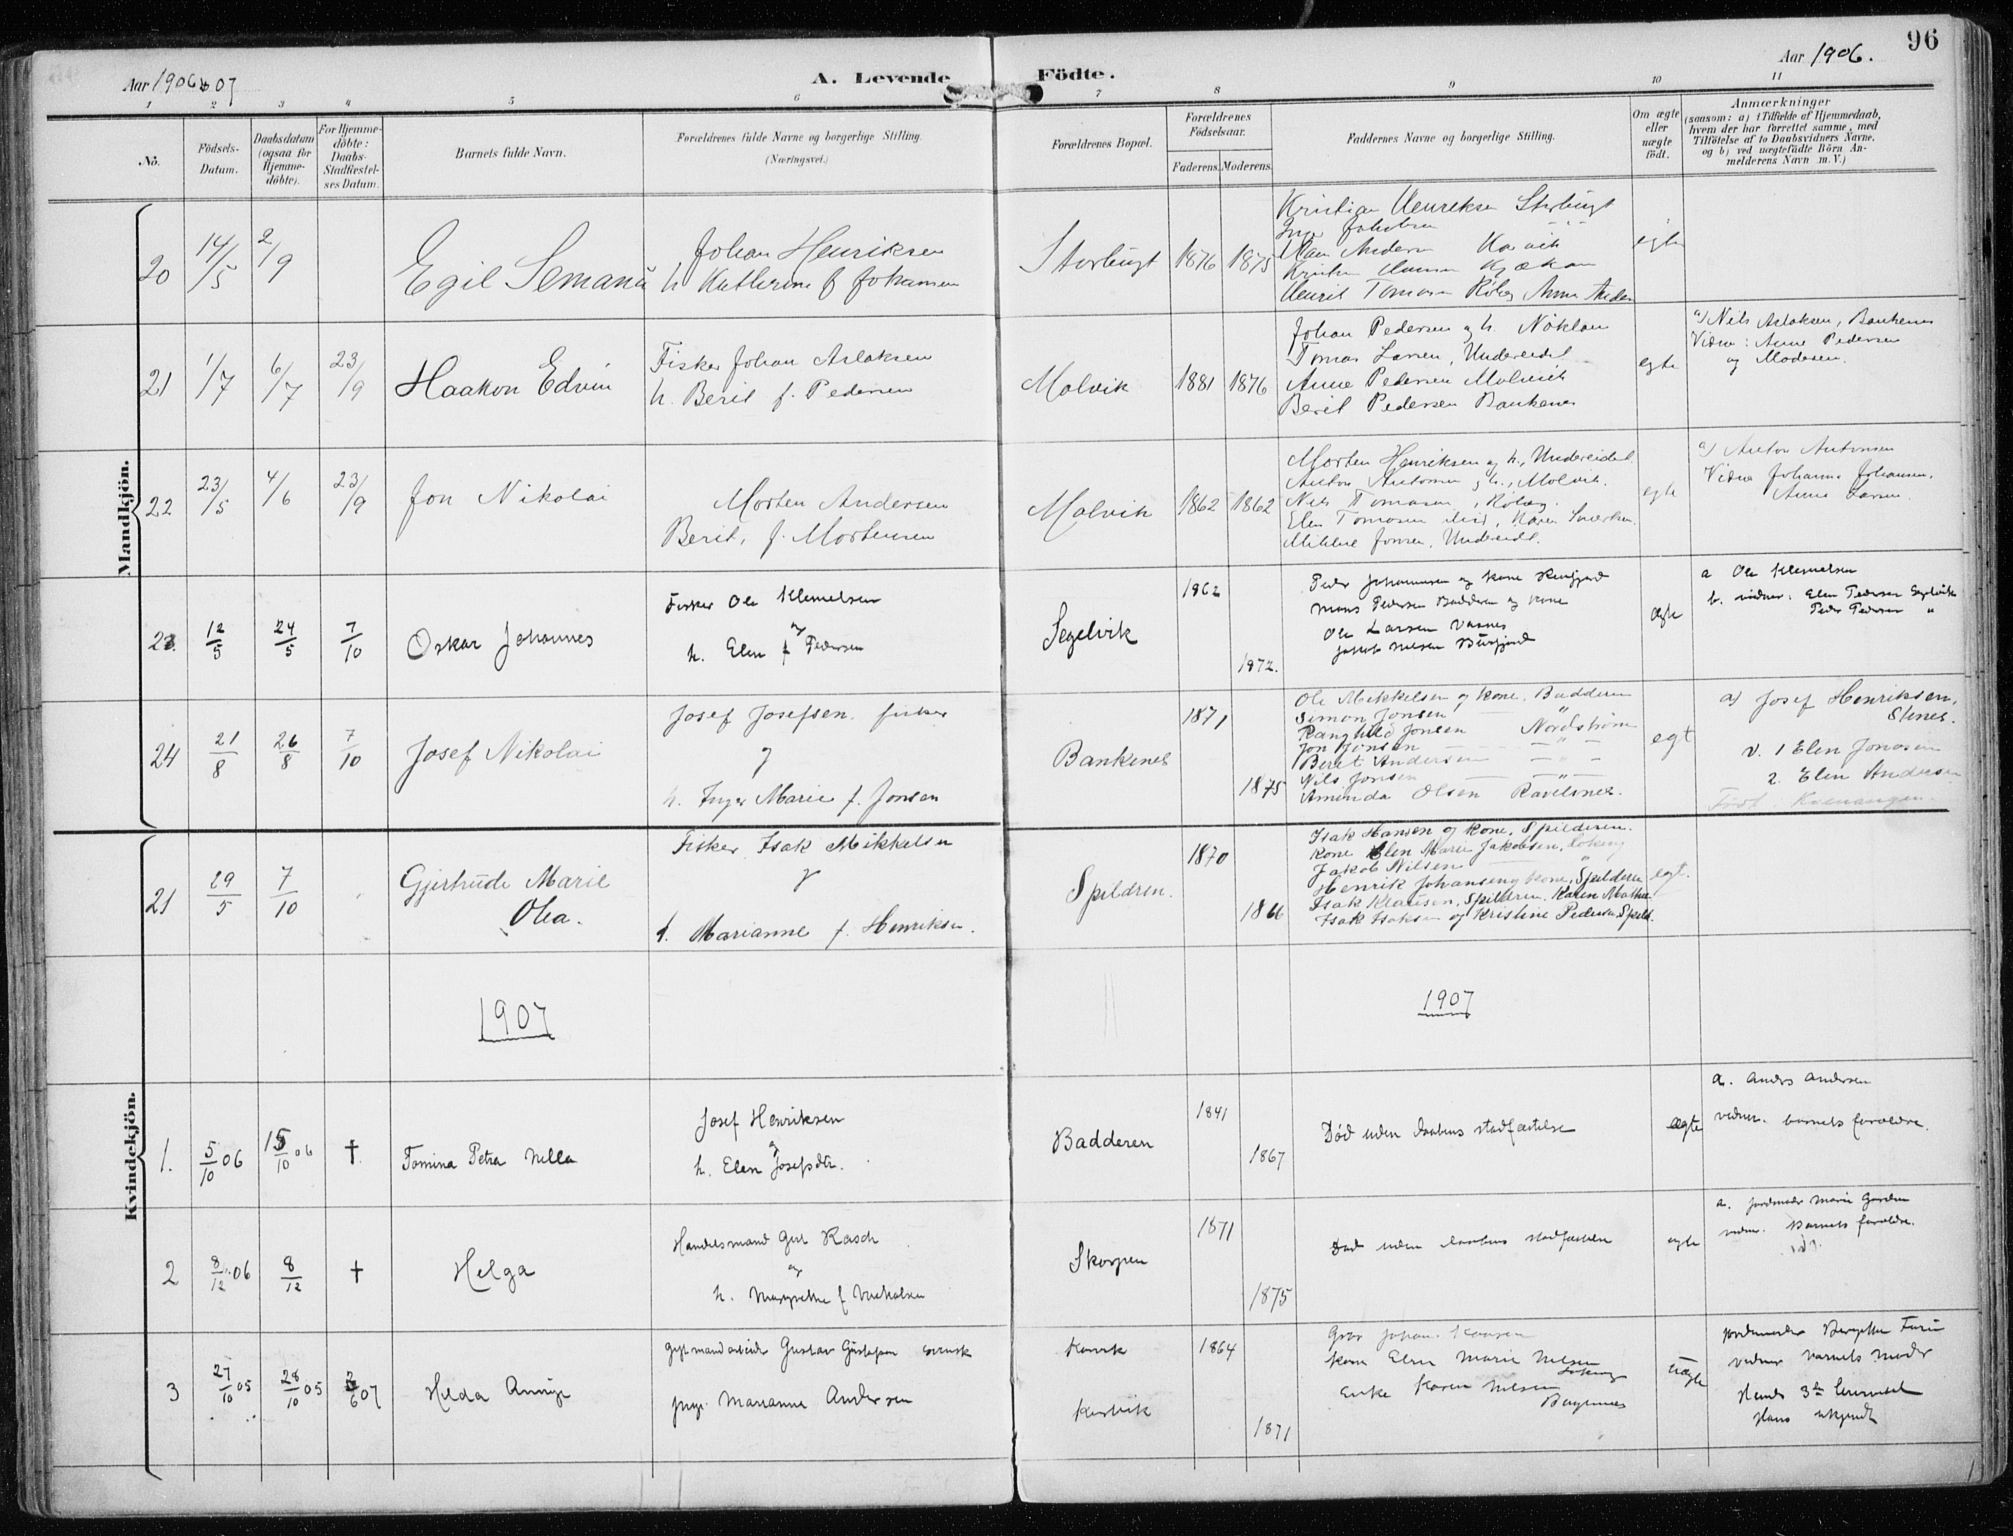 96
Aar 1906 & 07
A. Levende Födte.
Aar 1906.
1 2 3 4 5 6 7 8 9 10 11
No.
Födsels-
Datum.
Daabsdatum
(ogsaa for
Hjemme-
döbte).
For Hjemme-
döbte:
Daabs-
Stadfestel-
ses Datum.
Barnets fulde Navn.
Forældrenes fulde Navne og borgerlige Stilling.
(Næringsvei.)
Forældrenes Bopæl.
Forældrenes
Födselsaar.
Faderens. Moderens.
Faddernes Navne og borgerlige Stilling.
Om ægte
eller
uægte
födt.
Anmærkninger
(saasom: a) i Tilfælde af Hjemmedaab,
hvem der har forrettet samme, med
Tilföielse af to Daabsvidners Navne.
og b) ved uægtefödte Börn An-
melderens Navn m. V.)
Mandkjön.
20
14/5
2/9
Egil Semanu
Johan Henriksen
h Katherine f Johansen
Storbugt
1876
1875
Kristian Henriksen Storbugt
Henrik Tomasen
egte
21
1/7
6/7
23/9
Haakon Edvin
Fisker Johan Aslaksen
h. Berit f. Pedersen
Molvik
1881
1876
Johan Pedersen og h. Nöklan
Tomas Larsen, Undereidet
Anne Pedersen Molvik
Berit Pedersen Bankenes
egte
a) Nils Aslaksen, Bankenes
Vidne: Anne Pedersen
og Moderen.
22
23/5
4/6
23/9
Jon Nikolai
Morten Andersen
Berit, f. Mortensen
Molvik
1862
1862
Morten Henriksen og h., Undereidet.
Anton Antonsen og h., Molvik.
Nils Tomasen,
Elen Tomasen
Mikkel Jonsen, Undereidet.
egte
a) Anton Antonsen
Vidne Johanne Johansen,
Anne Larsen.
23.
12/5
24/5
7/10
Oskar Johannes
Fisker Ole Klemetsen
og
h. Elen f Pedersen
Segelvik
1862
1872.
Peder Johannesen og kone
Mons Pedersen Badderen og kone
Ole Larsen Vasnes
Jakob Nilsen Burfjord
ægte
a Ole Klemetsen
b. vidner. Elen Pedersen Segelvik
Peder Pedersen "
24
21/8
26/8
7/10
Josef Nikolai
Josef Josefsen. fisker
og
h. Inger Marie f. Jonsen
Bankenes
1871
1875
Ole Mikkelsen og kone. Badderen
Simon Jonsen "
Ranghild Jonsen Nordström
Jon Jonsen — " —
Beret Andersen — " —
Nils Jonsen — " —
Aminda Olsen Ravelsnes.
egt
a) Josef Henriksen,
Stenes.
v. 1 Elen Jonasen
2. Elen Andersen
Födt. Kvænangen.
Kvindekjön.
21
29/5
7/10
Gjertrude Marie
Olea.
Fisker Isak Mikkelsen
og
h. Marianne f. Henriksen.
Spildren.
1870
1866
Isak Hansen og kone, Spilderen.
Kone Elen Marie Jakobsen,
Jakob Nilsen "
Henrik Johansen og kone, Spilderen
Isak Klausen, Spilderen. Karen Mathea
Isak Isaksen og Kristine Pedersen, Spild.
egt.
1907
1907
1.
5/10 06
15/10 06
†
Tomina Petra Nella
Josef Henriksen
og
h. Elen Josefsdtr.
Badderen
1841
1867
Död uden daabens stadfæstelse
ægte
a. Anders Andersen
vidner. barnets forældre.
2
8/12 06
8/12
†
Helga
Handelsmand Gert Rasch
og
h. Margrethe f
Skorpen
1871
1875
Död uden daabens stadfæstelse
egte
a. Jordmoder Marie
vidner. Barnets forældre.
3
27/10 05
28/10 05
2/6 07
Helda
Gustav Gustafsen svensk
pige. Marianne Andersen
Karvik
Karvik
1864
1871
kone Elen Marie Nilsen
Enke Karen Nilsen
uægte
Jordmoder
vidner barnets moder
Hendes 3die leiermaal
Hans ukjendt